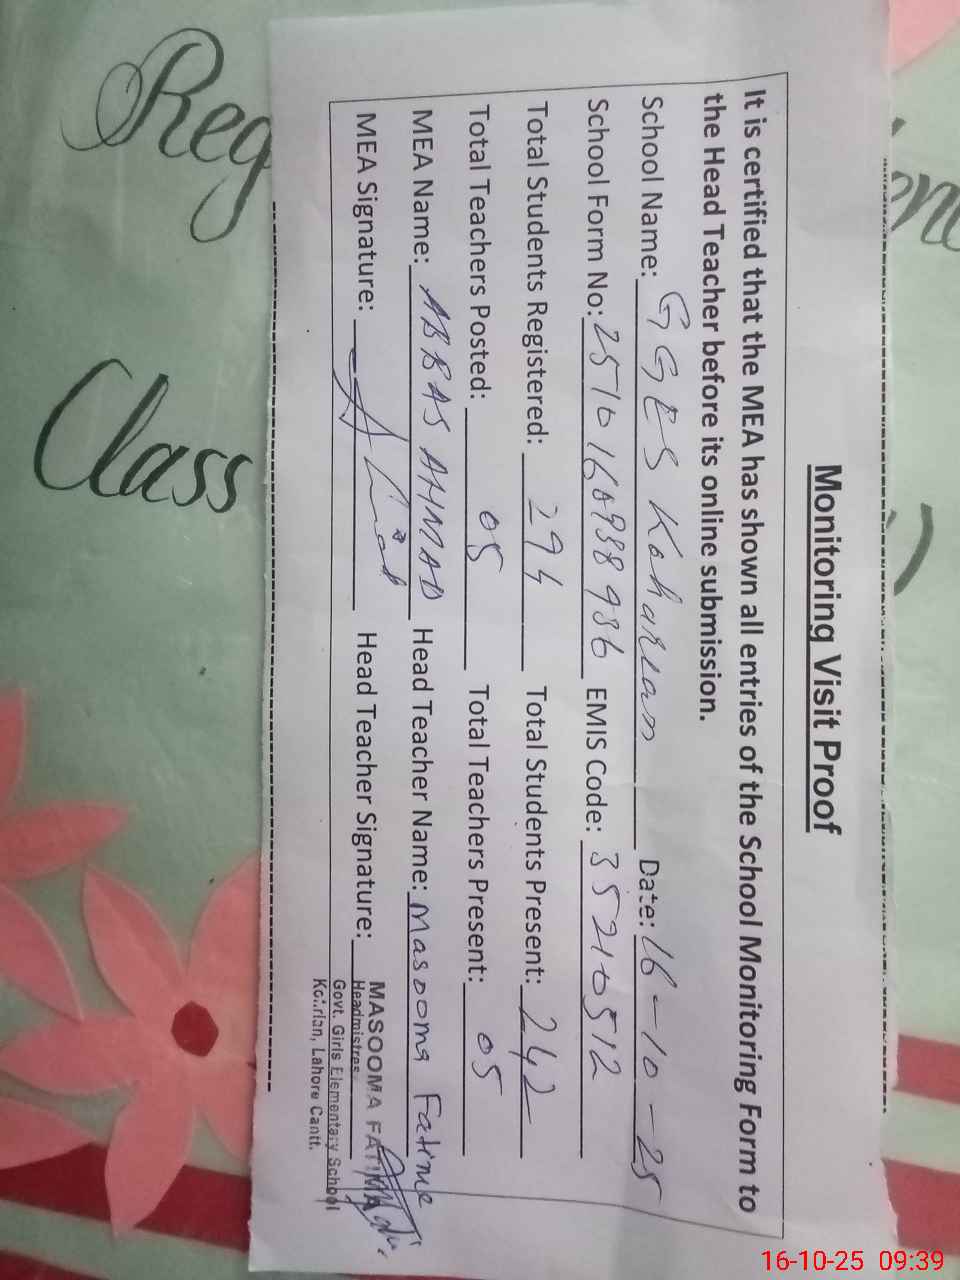 Monitoring Visit Proof
It is certified that the MEA has shown all entries of the School Monitoring Form to
the Head Teacher before its online submission.
School Name: GGES Koharian Date: 16-10-25
School Form No: EMIS Code: 35210512
Total Students Registered: 294 Total Students Present: 242
Total Teachers Posted: 05 Total Teachers Present: 05
MEA Name: ABBAS AHMAD Head Teacher Name: Masooma Fatima
MEA Signature: Head Teacher Signature:
MASOOMA FATIMA
Headmistress
Govt. Girls Elementary School
Lahore Cantt.
Reg
Class
16-10-25 09:39